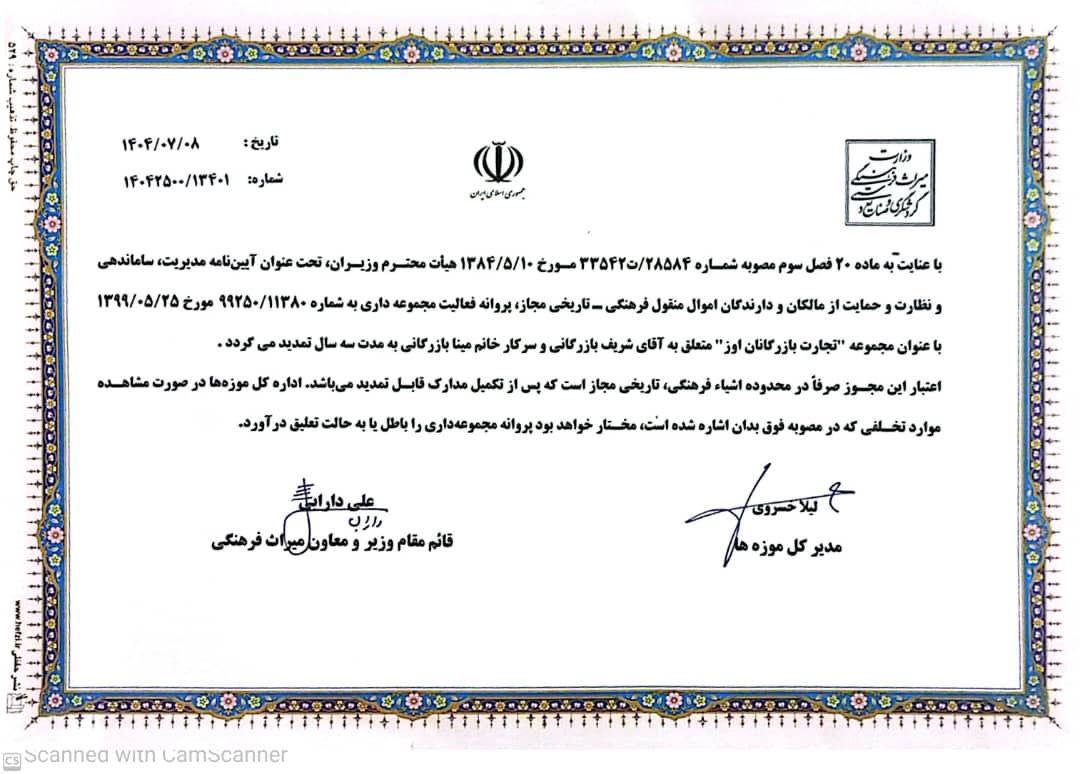 وزارت
میراث فرهنگی
گردشگری و صنایع دستی
جمهوری اسلامی ایران
تاریخ: ۱۴۰۴/۰۷/۰۸
شماره: ۱۴۰۴۲۵۰۰/۱۳۴۰۱
با عنایت به ماده ۲۰ فصل سوم مصوبه شماره ۲۸۵۸۴/ت۳۳۵۴۲ مورخ ۱۳۸۴/۵/۱۰ هیأت محترم وزیران، تحت عنوان آیین‌نامه مدیریت، ساماندهی
و نظارت و حمایت از مالکان و دارندگان اموال منقول فرهنگی – تاریخی مجاز، پروانه فعالیت مجموعه داری به شماره ۹۹۲۵۰/۱۱۳۸۰ مورخ ۱۳۹۹/۰۵/۲۵
با عنوان مجموعه "تجارت بازرگانان اوز" متعلق به آقای شریف بازرگانی و سرکار خانم مینا بازرگانی به مدت سه سال تمدید می گردد .
اعتبار این مجوز صرفاً در محدوده اشیاء فرهنگی، تاریخی مجاز است که پس از تکمیل مدارک قابل تمدید می‌باشد. اداره کل موزه‌ها در صورت مشاهده
موارد تخلفی که در مصوبه فوق بدان اشاره شده است، مختار خواهد بود پروانه مجموعه‌داری را باطل یا به حالت تعلیق درآورد.
لیلا خسروی
مدیر کل موزه ها
علی دارابی
قائم مقام وزیر و معاون میراث فرهنگی
حق چاپ محفوظ. تذهیب شماره: ۵۲۹
www.hefzi.ir
CS Scanned with CamScanner